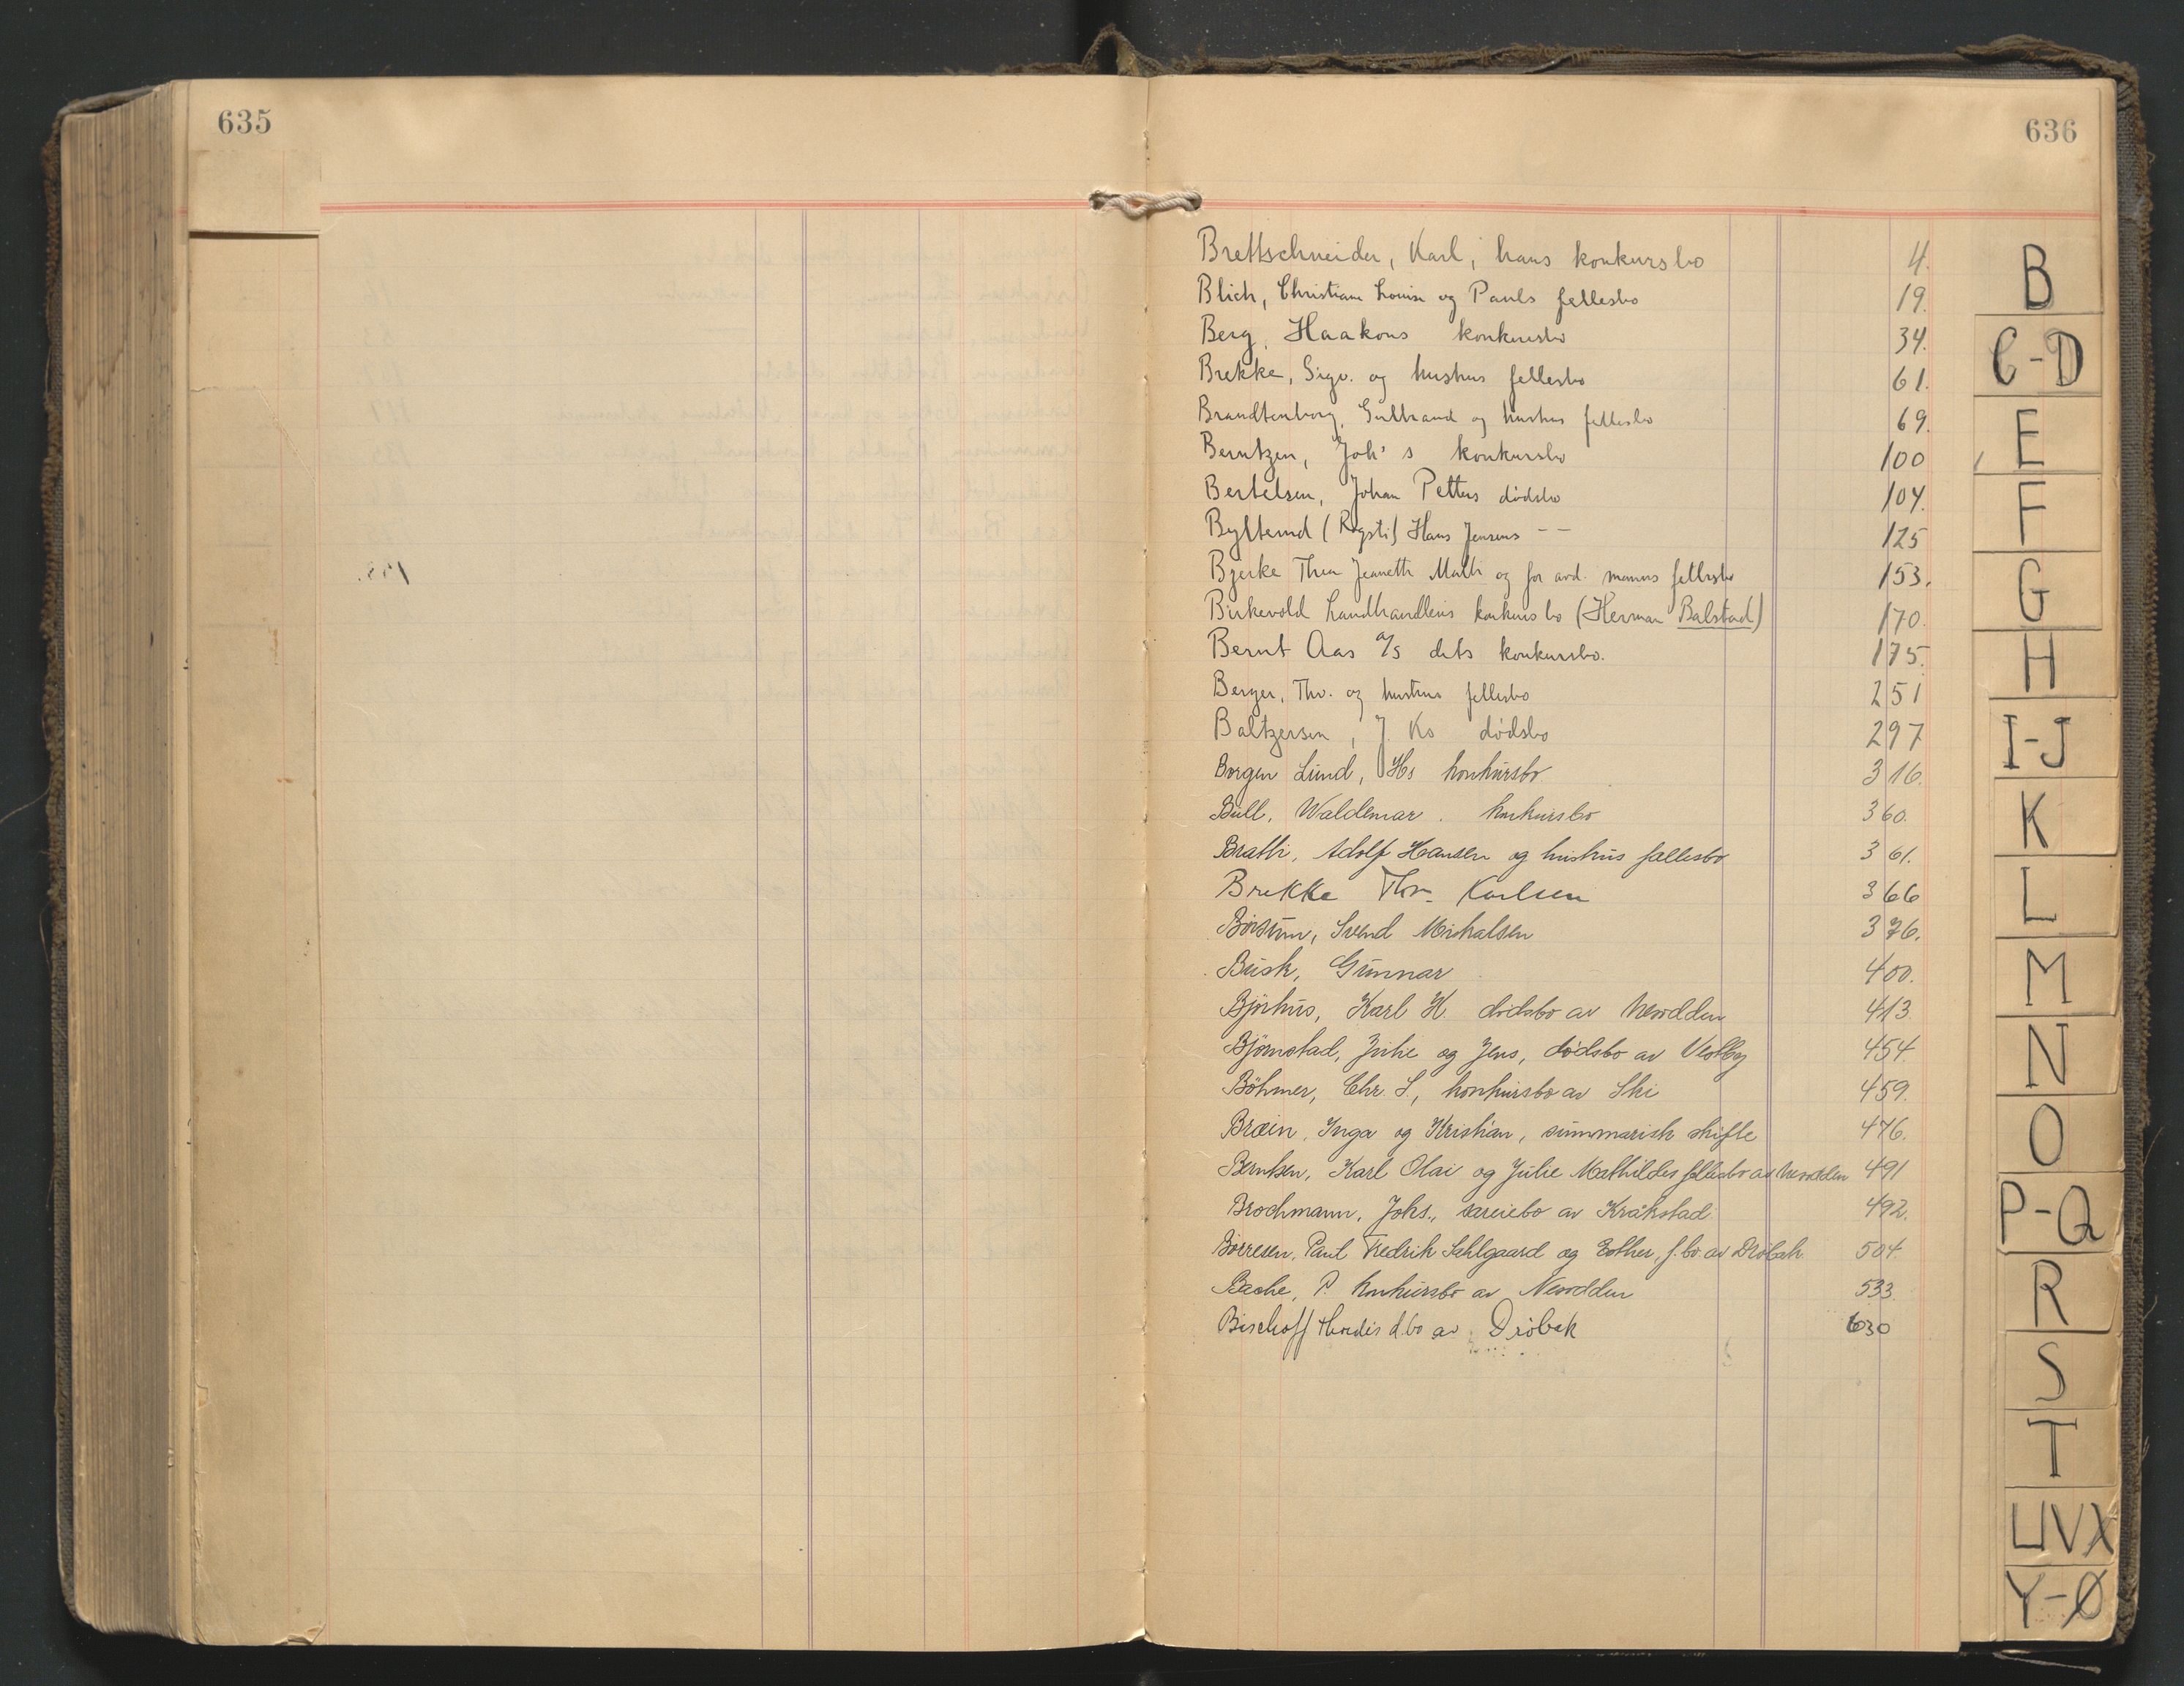 635
636
Brettschneider, Karl, hans konkursbo 4.
Blich, Christiane Louise og Pauls fellesbo 19.
Berg, Haakons konkursbo 34.
Brekke, Sigv. og hustrus fellesbo 61.
Brandtenborg, Gulbrand og hustrus fellesbo 69.
Berntzen, Joh's konkursbo 100
Bertelsen, Johan Petters dødsbo 104.
Hans Jensens - - 125
Bjerke Thea Jeanette Mathi og for avd. manns fellesbo 153.
Birkevold Landhandleris konkursbo (Herman Balstad) 170.
Bernt Aas A/S dets konkursbo. 175.
Berger, Thv. og hustrus fellesbo 251
Baltzersen, J. Ks dødsbo 297
Borgen Lund, Hs konkursbo 316.
Bull, Waldemar. konkursbo 360.
Bratli, Adolf Hansen og hustrus fellesbo 361.
Brekke Thv. Karlsen 366
Børsum, Svend Michalsen 376.
Busk, Gunnar 400.
Bjørhus, Karl H. dødsbo av Nesodden 413.
Bjørnstad, Julie og Jens, dødsbo av Vestby 454.
Böhmer, Chr. S., konkursbo av Ski 459.
Bræin, Inga og Kristian, summarisk skifte 476.
Berntsen, Karl Olai og Julie Mathildes fellesbo av Nesodden 491
Brochmann, Johs., særeiebo av Kråkstad 492.
Børresen, Paul Fredrik Sahlgaard og Esther, f.bo av Drøbak 504.
Bache, P. konkursbo av Nesodden 533.
Bischoff Hordis d.bo av Drøbak 630
B
C-D
E
F
G
H
I-J
K
L
M
N
O
P-Q
R
S
T
UVX
Y-Ø